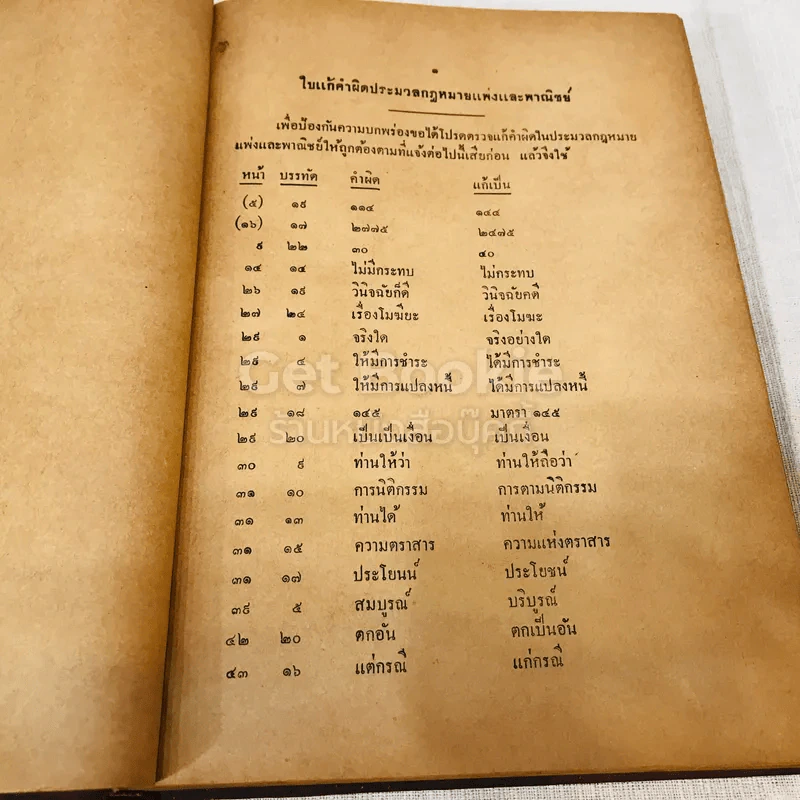 ๑
ใบแก้คำผิดประมวลกฎหมายแพ่งและพาณิชย์
เพื่อป้องกันความบกพร่องขอได้โปรดตรวจแก้คำผิดในประมวลกฎหมาย
แพ่งและพาณิชย์ให้ถูกต้องตามที่แจ้งต่อไปนี้เสียก่อน แล้วจึงใช้
หน้า บรรทัด คำผิด แก้เป็น
(๕) ๑๙ ๑๑๔ ๑๔๔
(๑๖) ๑๗ ๒๗๗๕ ๒๔๗๕
๙ ๒๒ ๓๐ ๔๐
๑๔ ๑๔ ไม่มีกระทบ ไม่กระทบ
๒๖ ๑๙ วินิจฉัยก็ดี วินิจฉัยคดี
๒๗ ๒๔ เรื่องโมฆียะ เรื่องโมฆะ
๒๙ ๑ จริงใด จริงอย่างใด
๒๙ ๔ ให้มีการชำระ ได้มีการชำระ
๒๙ ๗ ให้มีการแปลงหนี้ ได้มีการแปลงหนี้
๒๙ ๑๘ ๑๔๕ มาตรา ๑๔๕
๒๙ ๒๐ เป็นเป็นเงื่อน เป็นเงื่อน
๓๐ ๙ ท่านให้ว่า ท่านให้ถือว่า
๓๑ ๑๐ การนิติกรรม การตามนิติกรรม
๓๑ ๑๓ ท่านได้ ท่านให้
๓๑ ๑๕ ความตราสาร ความแห่งตราสาร
๓๑ ๑๗ ประโยนน์ ประโยชน์
๓๙ ๕ สมบูรณ์ บริบูรณ์
๔๒ ๒๐ ตกอัน ตกเป็นอัน
๔๓ ๑๖ แต่กรณี แก่กรณี
Get Bookie
ร้านหนังสือบุ๊คกี้